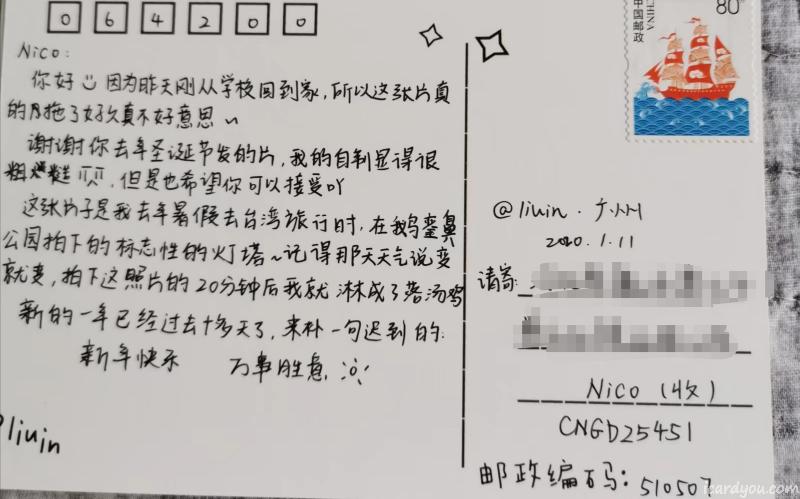 064200
Nico:
你好 因为昨天刚从学校回到家,所以这张片真
的拖了好久真不好意思~
谢谢你去年圣诞节发的片,我的自制显得很
粗糙,但是也希望你可以接受吖
这张片子是我去年暑假去台湾旅行时,在鹅銮鼻
公园拍下的标志性的灯塔~记得那天天气说变
就变,拍下这照片的20分钟后我就淋成了落汤鸡
新的一年已经过去十多天了,来补一句迟到的:
新年快乐 万事胜意
liuin
80
中国邮政
CHINA
@liuin.广州
2020.1.11
请寄:
Nico(收)
CNGD25451
邮政编码:510507
icardyou.com